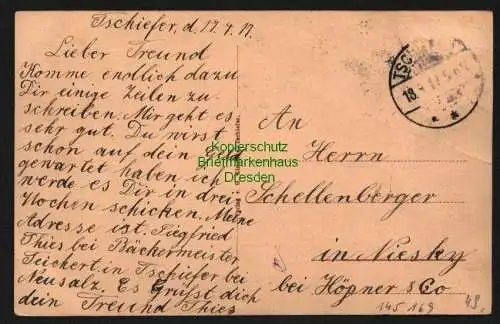 Tschiefer, d. 17.4.17.
Lieber Freund
Komme endlich dazu
Dir einige Zeilen zu
schreiben. Mir geht es
sehr gut. Du wirst
schon auf dein Geld
gewartet haben ich
werde es Dir in drei
Wochen schicken. Meine
Adresse ist. Siegfried
Thies bei Bäckermeister
Teichert in Tschiefer bei
Neusalz. Es Grüßt dich
dein Freund Thies
TSCH
18
An
Herrn
Schellenberger
in Niesky
bei Höpner & Co
145 169
48.
Kopierschutz
Briefmarkenhaus
Dresden